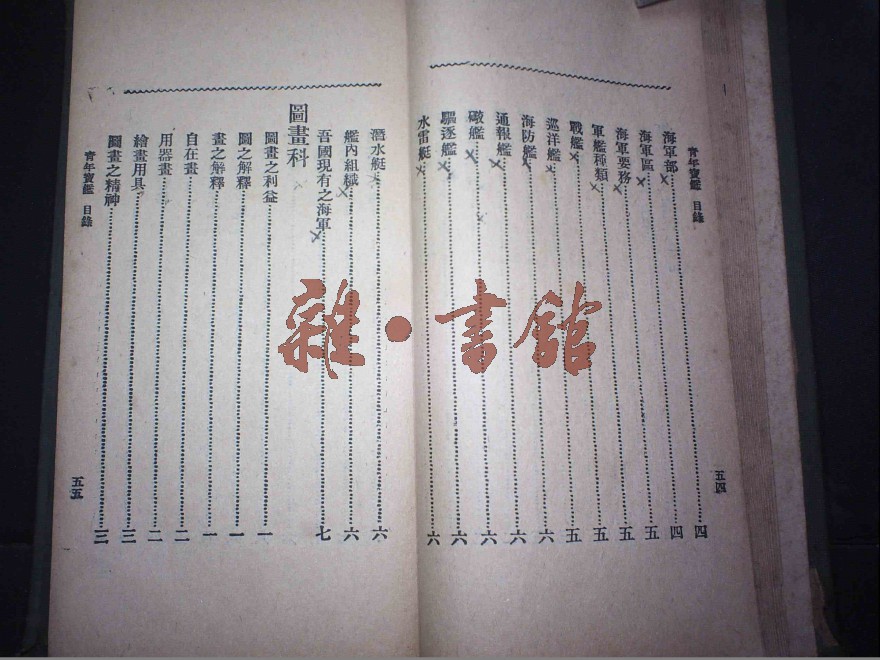 青年寶鑑 目錄 五四
海軍部 四
海軍區 四
海軍要務 五
軍艦種類 五
戰艦 五
巡洋艦 五
海防艦 六
通報艦 六
礮艦 六
驅逐艦 六
水雷艇 六
潛水艇 六
艦內組織 六
吾國現有之海軍 七
圖畫科
圖畫之利益 一
圖之解釋 一
畫之解釋 一
自在畫 二
用器畫 二
繪畫用具 三
圖畫之精神 三
青年寶鑑 目錄 五五
雜·書館